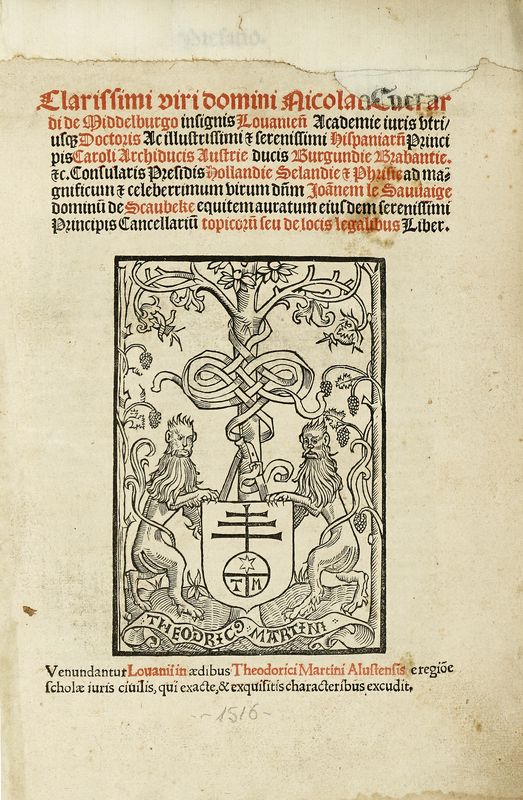 Clarissimi viri domini Nicolao Euerar
di de Middelburgo insignis Louanieñ Academie iuris vtri/
usqꝫ Doctoris Ac illustrissimi ⁊ serenissimi Hispaniarũ Princi
pis Caroli Archiducis Austrie ducis Burgundie Brabantie.
⁊c. Consularis Presidis Hollandie Selandie ⁊ Phrisie ad ma-
gnificum ⁊ celeberrimum virum dñm Joãnem le Sauuaige
dominũ de Scaubeke equitem auratum eiusdem serenissimi
Principis Cancellariũ topicorũ seu de locis legalibus Liber.
T M
THEODRICꝰ MARTINI
Venundantur Louanii in ædibus Theodorici Martini Alustensis e regiõe
scholæ iuris ciuilis, qui exacte, & exquisitis characteribus excudit.
-1516-